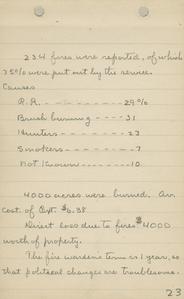 234 fires were reported, of which
75% were put out by the service.
Causes
R.R. - - - - - - - - - - 29%
Brush burning - - - - 31
Hunters - - - - - - - 23
Smokers - - - - - - - 7
Not Known - - - - - 10
4000 acres were burned. Av.
cost of $6.38
Direct loss due to fires $4000
worth of property.
The fire wardens term is 1 year, so
that political changes are troublesome.
23